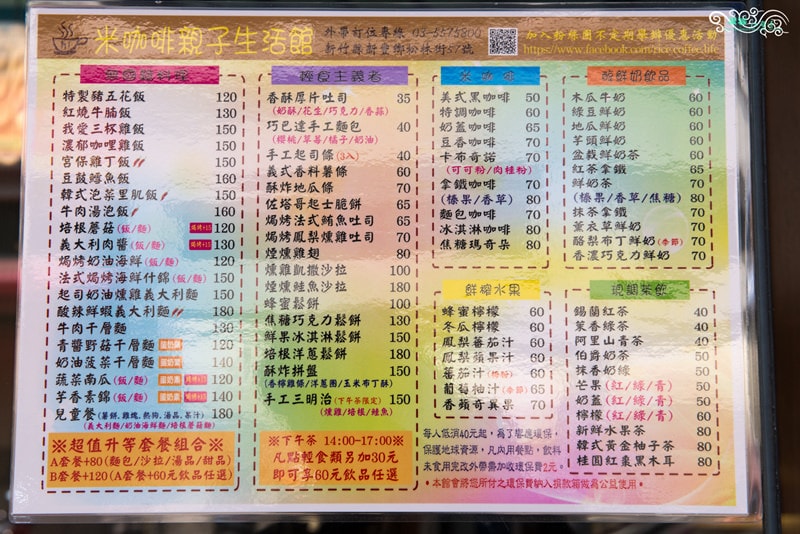 米咖啡親子生活館
外帶訂位專線 03-5575800
新竹縣新豐鄉松林街57號
加入粉絲團不定期舉辦優惠活動
https://www.facebook.com/rice.coffee.life
特製豬五花飯 120
紅燒牛腩飯 130
我愛三杯雞飯 150
濃郁咖哩雞飯 150
宮保雞丁飯 150
豆豉鱈魚飯 160
韓式泡菜里肌飯 150
牛肉湯泡飯 160
培根蘑菇(飯/麵) 焗烤+15 120
義大利肉醬(飯/麵) 焗烤+15 130
焗烤奶油海鮮(飯/麵) 150
法式焗烤海鮮什錦(飯/麵) 150
起司奶油燻雞義大利麵 150
酸辣鮮蝦義大利麵 180
牛肉千層麵 150
青醬野菇千層麵 蛋奶素 120
奶油菠菜千層麵 蛋奶素 140
蔬菜南瓜(飯/麵) 蛋奶素 120
芋香素錦(飯/麵) 蛋奶素 140
兒童餐(薯餅,雞塊,熱狗,湯品,果汁) 180
(義大利肉醬/奶油海鮮麵/培根蘑菇麵)
※超值升等套餐組合※
A套餐+80(麵包/沙拉/湯品/甜品)
B套餐+120(A套餐+60元飲品任選)
輕食主義者
香酥厚片吐司 35
(奶酥/花生/巧克力/香蒜)
巧巴達手工麵包 40
(櫻桃/草莓/橘子/奶油)
手工起司條(3入) 40
義式香料薯條 60
酥炸地瓜條 70
佐塔哥起士脆餅 65
焗烤法式鮪魚吐司 65
焗烤鳳梨燻雞吐司 70
煙燻雞翅 80
燻雞凱撒沙拉 100
煙燻鮭魚沙拉 180
蜂蜜鬆餅 100
焦糖巧克力鬆餅 130
鮮果冰淇淋鬆餅 150
培根洋蔥鬆餅 180
酥炸拼盤 150
(香檸雞條/洋蔥圈/玉米布丁酥)
手工三明治(下午茶限定) 150
(燻雞/培根/鮭魚)
※下午茶 14:00-17:00※
凡點輕食類另加30元
即可享60元飲品任選
米咖啡
美式黑咖啡 50
特調咖啡 60
奶蓋咖啡 65
豆香咖啡 70
卡布奇諾 70
(可可粉/肉桂粉)
拿鐵咖啡 70
(榛果/香草) 80
麵包咖啡 70
冰淇淋咖啡 80
焦糖瑪奇朵 80
鮮榨水果
蜂蜜檸檬 60
冬瓜檸檬 60
鳳梨蕃茄汁 60
鳳梨蘋果汁 60
蕃茄汁 60
葡萄柚汁(季節) 65
香蘋奇異果 70
每人低消40元起，為了響應環保，
保護地球資源，凡內用餐點，飲料
未食用完改外帶需加收環保費2元。
*本館會將您所付之環保費納入捐款箱做為公益使用*
醇鮮奶飲品
木瓜牛奶 60
綠豆鮮奶 60
地瓜鮮奶 60
芋頭鮮奶 60
盆栽鮮奶茶 60
紅茶拿鐵 65
鮮奶茶 70
(榛果/香草/焦糖) 80
抹茶拿鐵 70
薰衣草鮮奶 70
酪梨布丁鮮奶(季節) 70
香濃巧克力鮮奶 70
現調茶飲
錫蘭紅茶 40
茉香綠茶 40
阿里山青茶 40
伯爵奶茶 50
抹香奶綠 50
芒果(紅/綠/青) 50
奶蓋(紅/綠/青) 60
檸檬(紅/綠/青) 60
新鮮水果茶 80
韓式黃金柚子茶 80
桂圓紅棗黑木耳 80